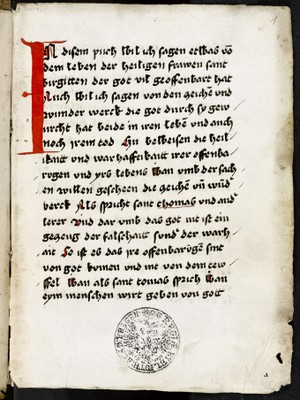 In disem puch wil ich sagen etwas vō
dem leben der heiligen frawen sant
birgitten der got vil geoffenbart hat
Auch wil ich sagen von den zeichē und
wunder werck die got durch sy gew
urcht hat beide in iren lebē und auch
noch irem tod Zu beweisen die heil
ikait und warhaffenkait irer offenba
rūgen und yrs lebens wan umb der sach
en willen gescheen die zeichē uñ wūd
verck Als spricht sant thomas und and
lerer Und dar umb das got nit ist ein
gezeug der falschait sund der warh
ait So ist es das ire offenbarūgē sint
von got kumen und nit von dem tew
ffel Wan als sant tomas sprich Wan
eym menschen wirt geben von gott